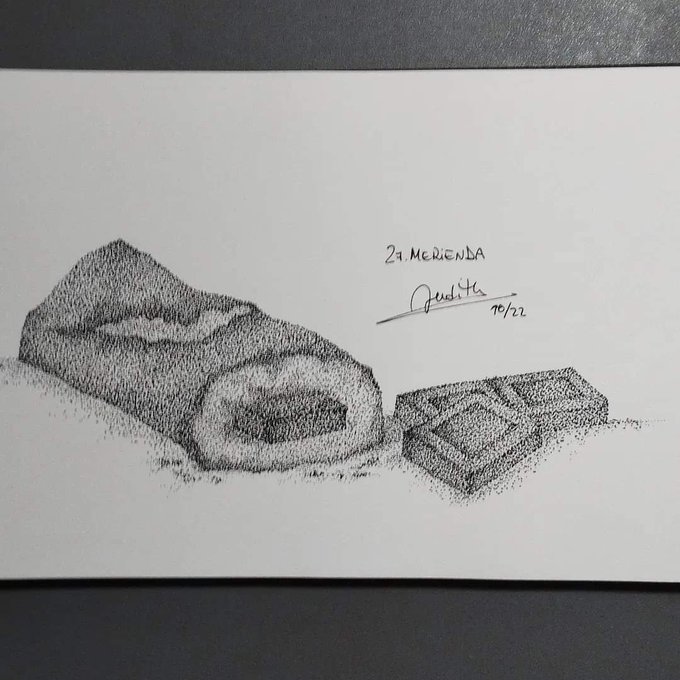 27. MERIENDA
Judith
10/22